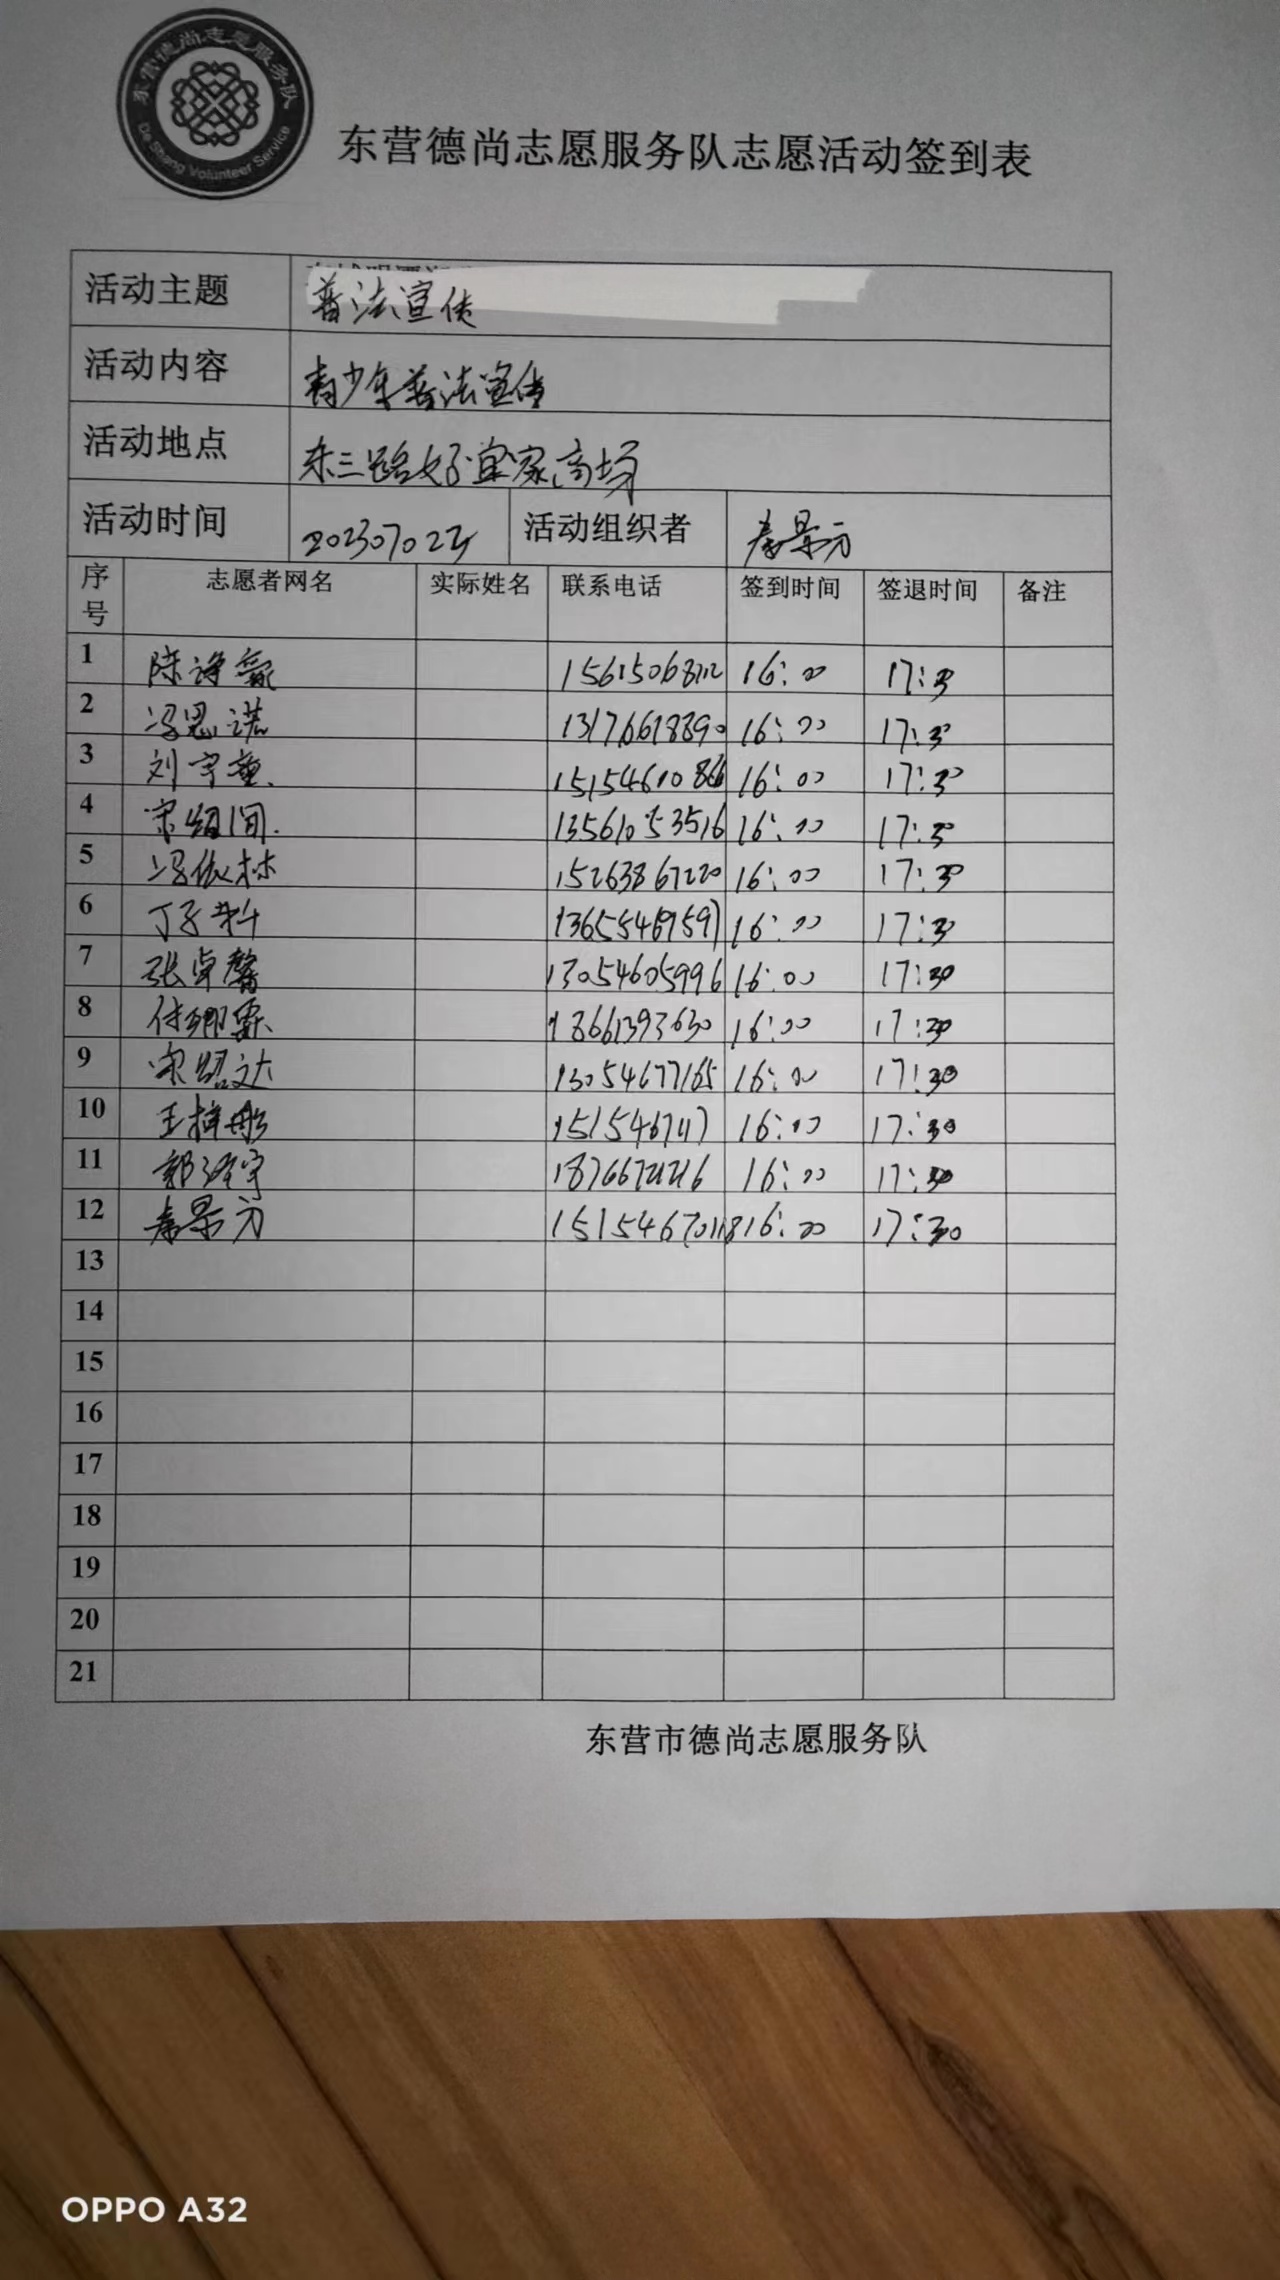 东营德尚志愿服务队
De Shang Volunteer Service
东营德尚志愿服务队志愿活动签到表
活动主题 普法宣传
活动内容 青少年普法宣传
活动地点 东三路好宜家商场
活动时间 20230702 活动组织者 秦景方
序号 志愿者网名 实际姓名 联系电话 签到时间 签退时间 备注
1 陈诤赢 16:00 17:30
2 冯思诺 13176618890 16:00 17:30
3 刘宇 16:00 17:30
4 宋 13561053516 16:00 17:30
5 冯依林 15263867220 16:00 17:30
6 丁子 13655469597 16:00 17:30
7 张卓馨 13054605996 16:00 17:30
8 付 18661393630 16:00 17:30
9 宋绍达 13054677165 16:00 17:30
10 王 16:00 17:30
11 郭泽宇 16:00 17:30
12 秦景方 15154670118 16:00 17:30
13
14
15
16
17
18
19
20
21
东营市德尚志愿服务队
OPPO A32